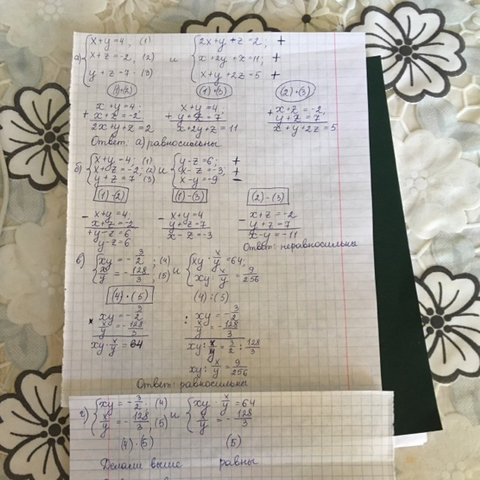 а) { x+y=4, (1)
x+z=-2, (2)
y+z=7 (3)
и
{ 2x+y+z=2, +
x+2y+z=11; +
x+y+2z=5 +
(1)+(2) (1)+(3) (2)+(3)
+ x+y=4; x+z=-2 2x+y+z=2.
+ x+y=4 y+z=7 x+2y+z=11
+ x+z=-2, y+z=7 x+y+2z=5
Ответ: а) равносильны
б) { x+y=4; (1)
x+z=-2; (2)
y+z=7 (3)
и
{ y-z=6; +
x-z=-3; +
x-y=-9 -
(1)-(2) (1)-(3) (2)-(3)
- x+y=4 x+z=-2 y-z=6
y-z=6
- x+y=4 y+z=7 x-z=-3
x+z=-2 y+z=7 x-y=-11
Ответ: неравносильны
в) { xy=-3/2; (4)
x/y=-128/3, (5)
и
{ xy·x/y=64;
xy:x/y=9/256
(4)·(5) (4):(5)
× xy=-3/2 x/y=-128/3 xy·x/y=64
: xy=-3/2 x/y=-128/3 xy:x/y=3/2:128/3
xy:x/y=9/256
Ответ: равносильны
г) { xy=-3/2; (4)
x/y=-128/3, (5)
и
{ xy·x/y=64
x/y=-128/3
(4)·(5) (5)
Делали выше равны